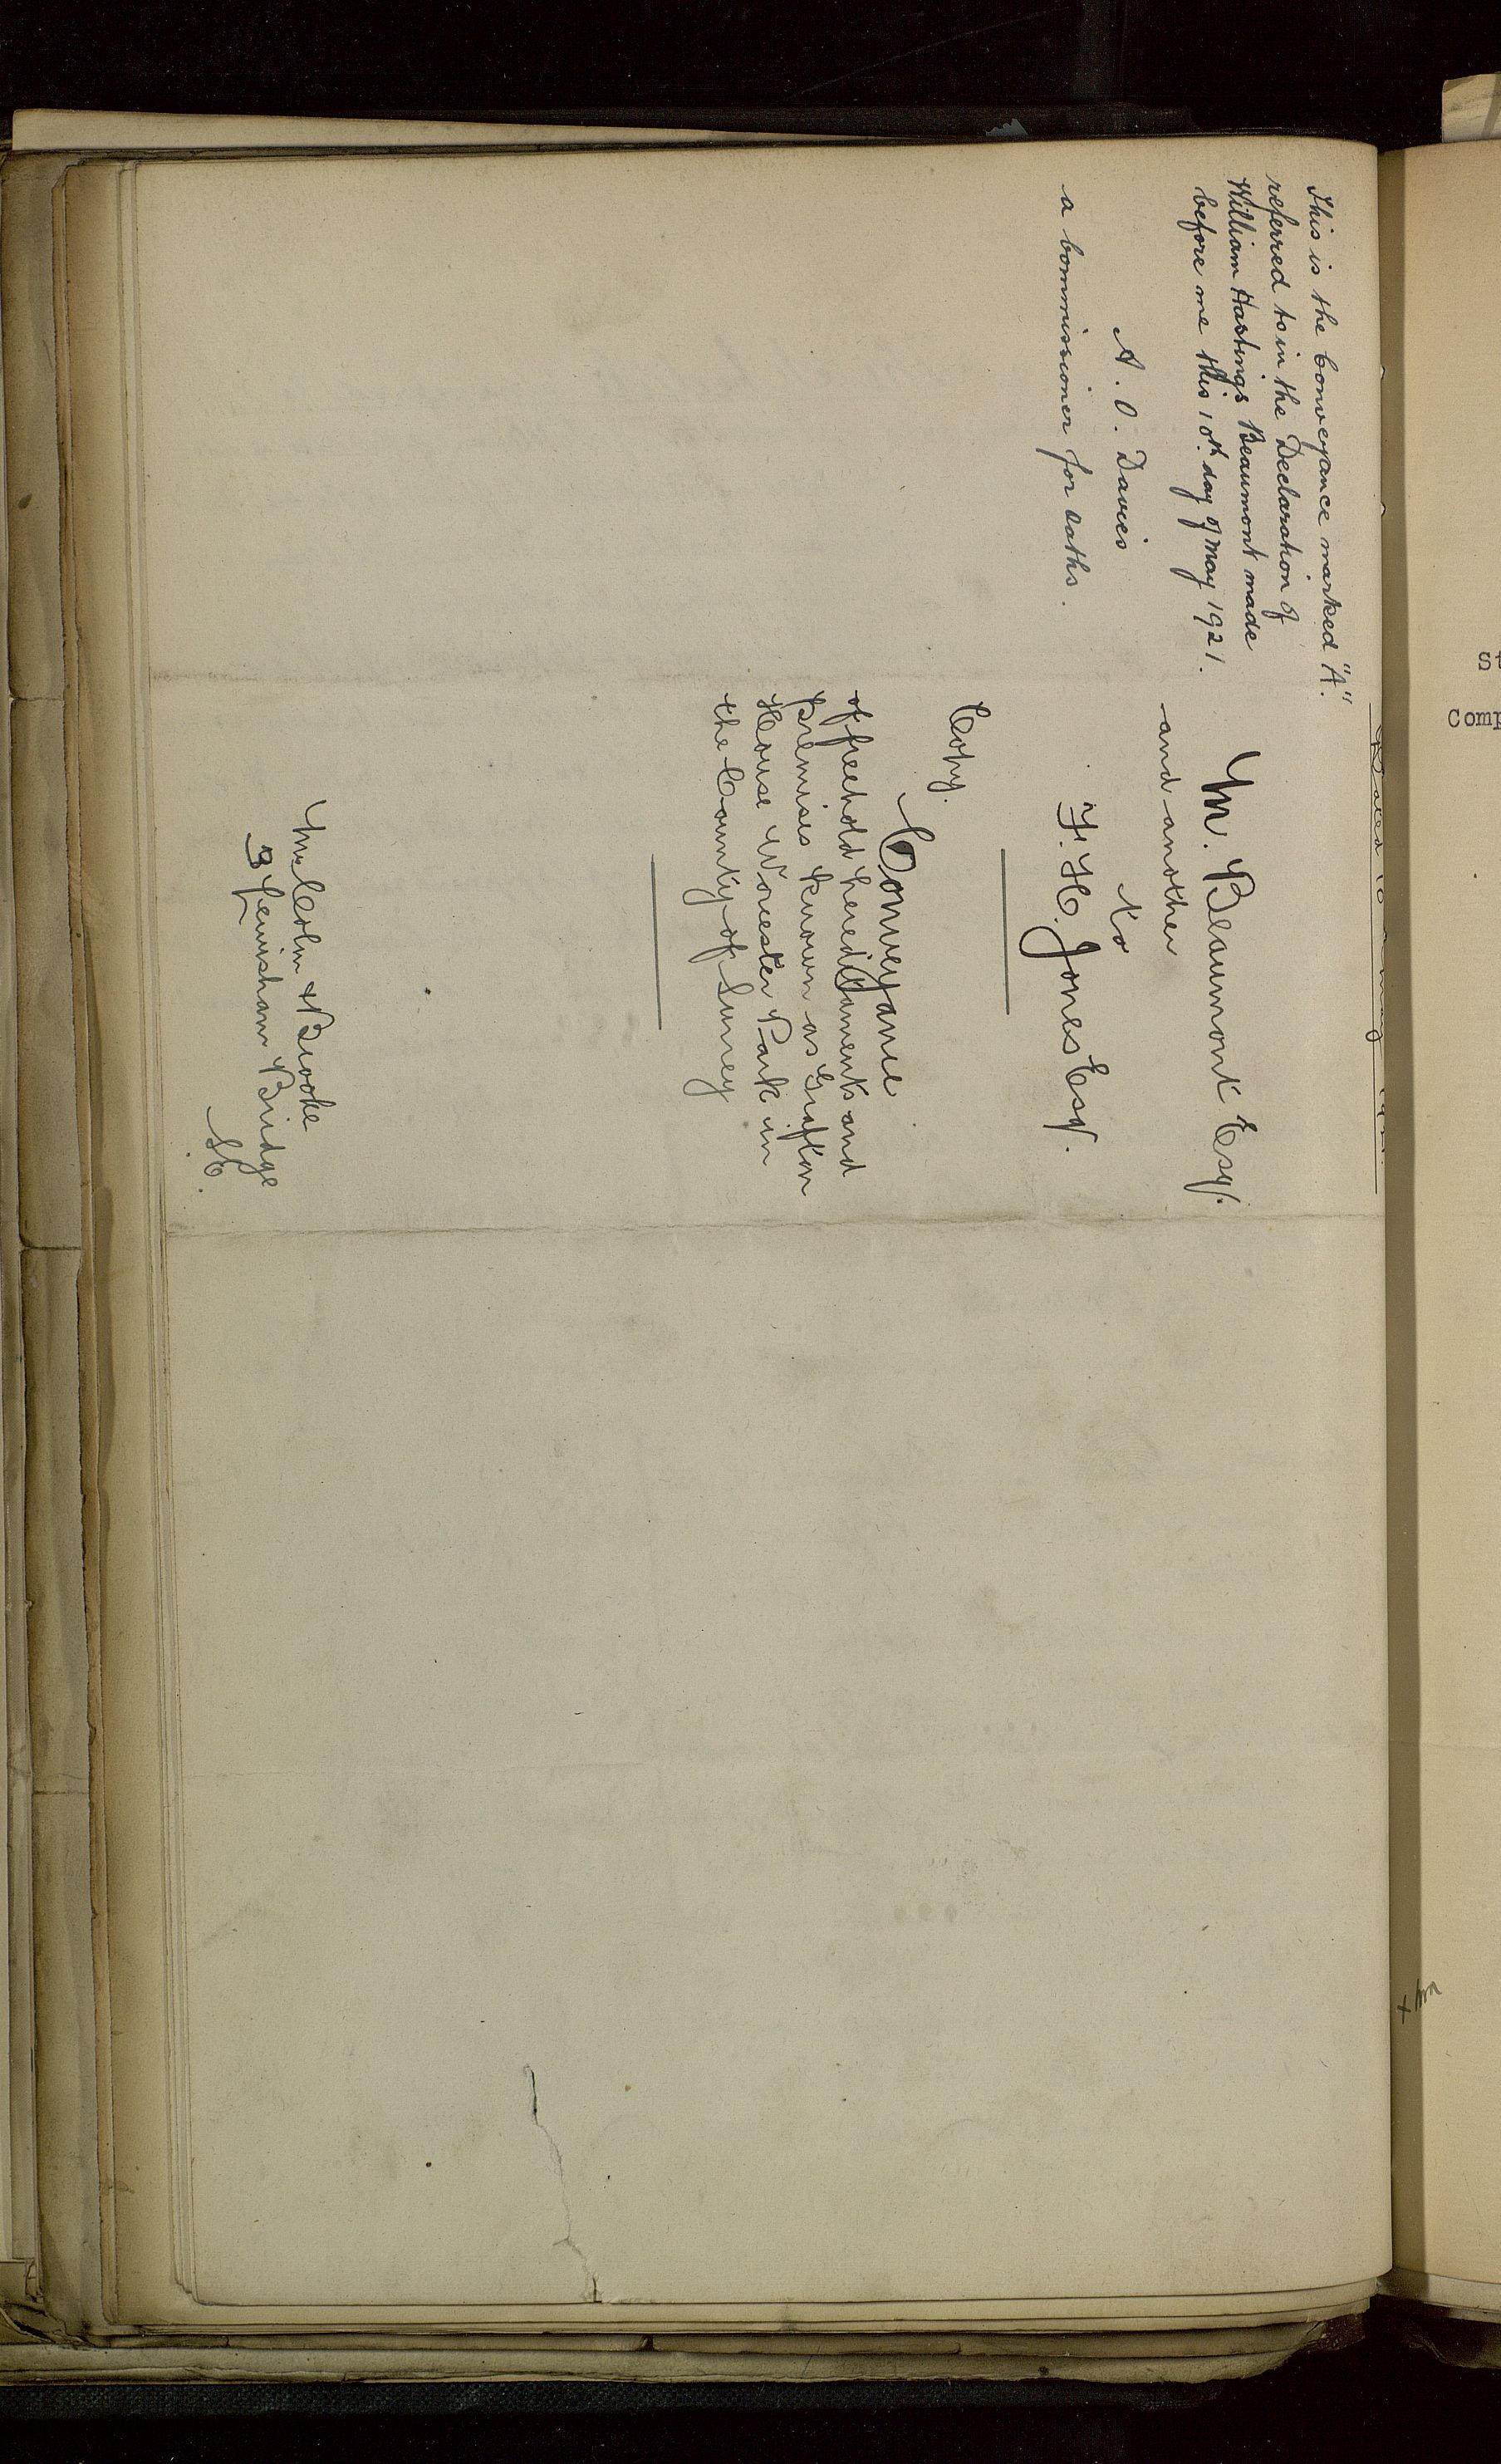 This is the Conveyance marked "A".
referred to in the Declaration of
William Hastings Beaumont made
before me this 10th day of May 1921.
A. O. Davies
a Commissioner for oaths.
Dated
M. Beaumont Esq.
and another
to
F. H. Jones Esq.
Copy.
Conveyance
of freehold hereditaments and
premises known as Grafton
House Worcester Park in
the County of Surrey
& Brooke
Lewisham Bridge
S.E.
St
Comp